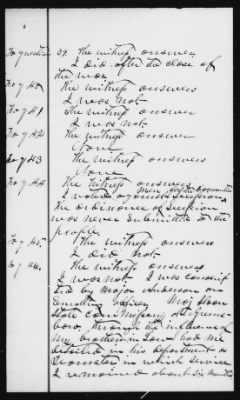 To question 39. The witness answers
I did after the close of
the war
To q 40. The witness answers
I was not
To q 41 The witness answers
I was not
To q 42 The witness answers
None
To q 43 The witness answers
None
To q 44 The witness answers
I voted against Secession,
the ordinance of Secession
was never submitted to the
people.
To q 45. The witness answers
I did not
To q 46. The witness answers
I was not. I was conscrip
ted by Major Anderson an
Enrolling Officer. Maj Sloan
State Commissary at Greens-
boro, through the influence of
my brother in law had me
detailed in his department as
in which service
I remained about six months